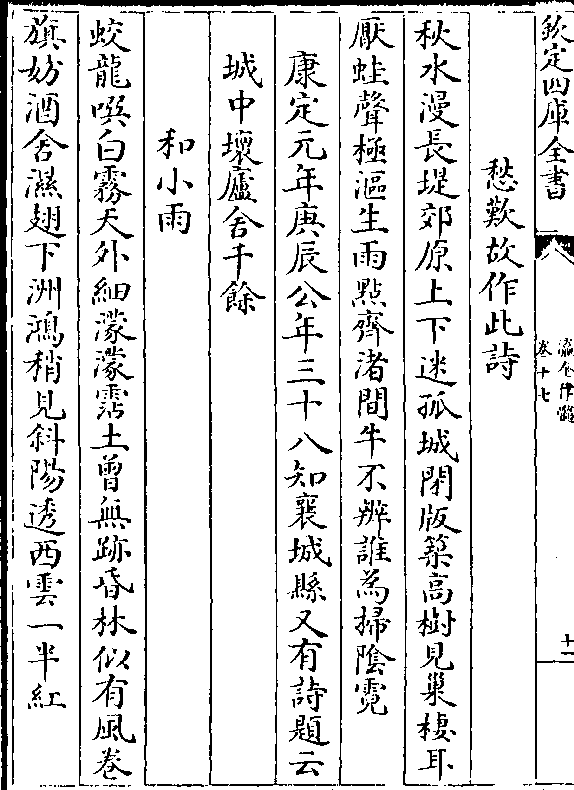 欽定四庫全書
卷十七
十二
愁歎故作此詩
秋水漫長堤郊原上下迷孤城閉版築高樹見巢棲耳
厭蛙聲極漚生雨點齊渚間牛不辨誰為掃陰霓
康定元年庚辰公年三十八知襄城縣又有詩題云
城中壞廬舍千餘
和小雨
蛟龍噀白霧天外細濛濛霑土曾無跡昏林似有風卷
旗妨酒舍濕翅下洲鴻稍見斜陽透西雲一半紅